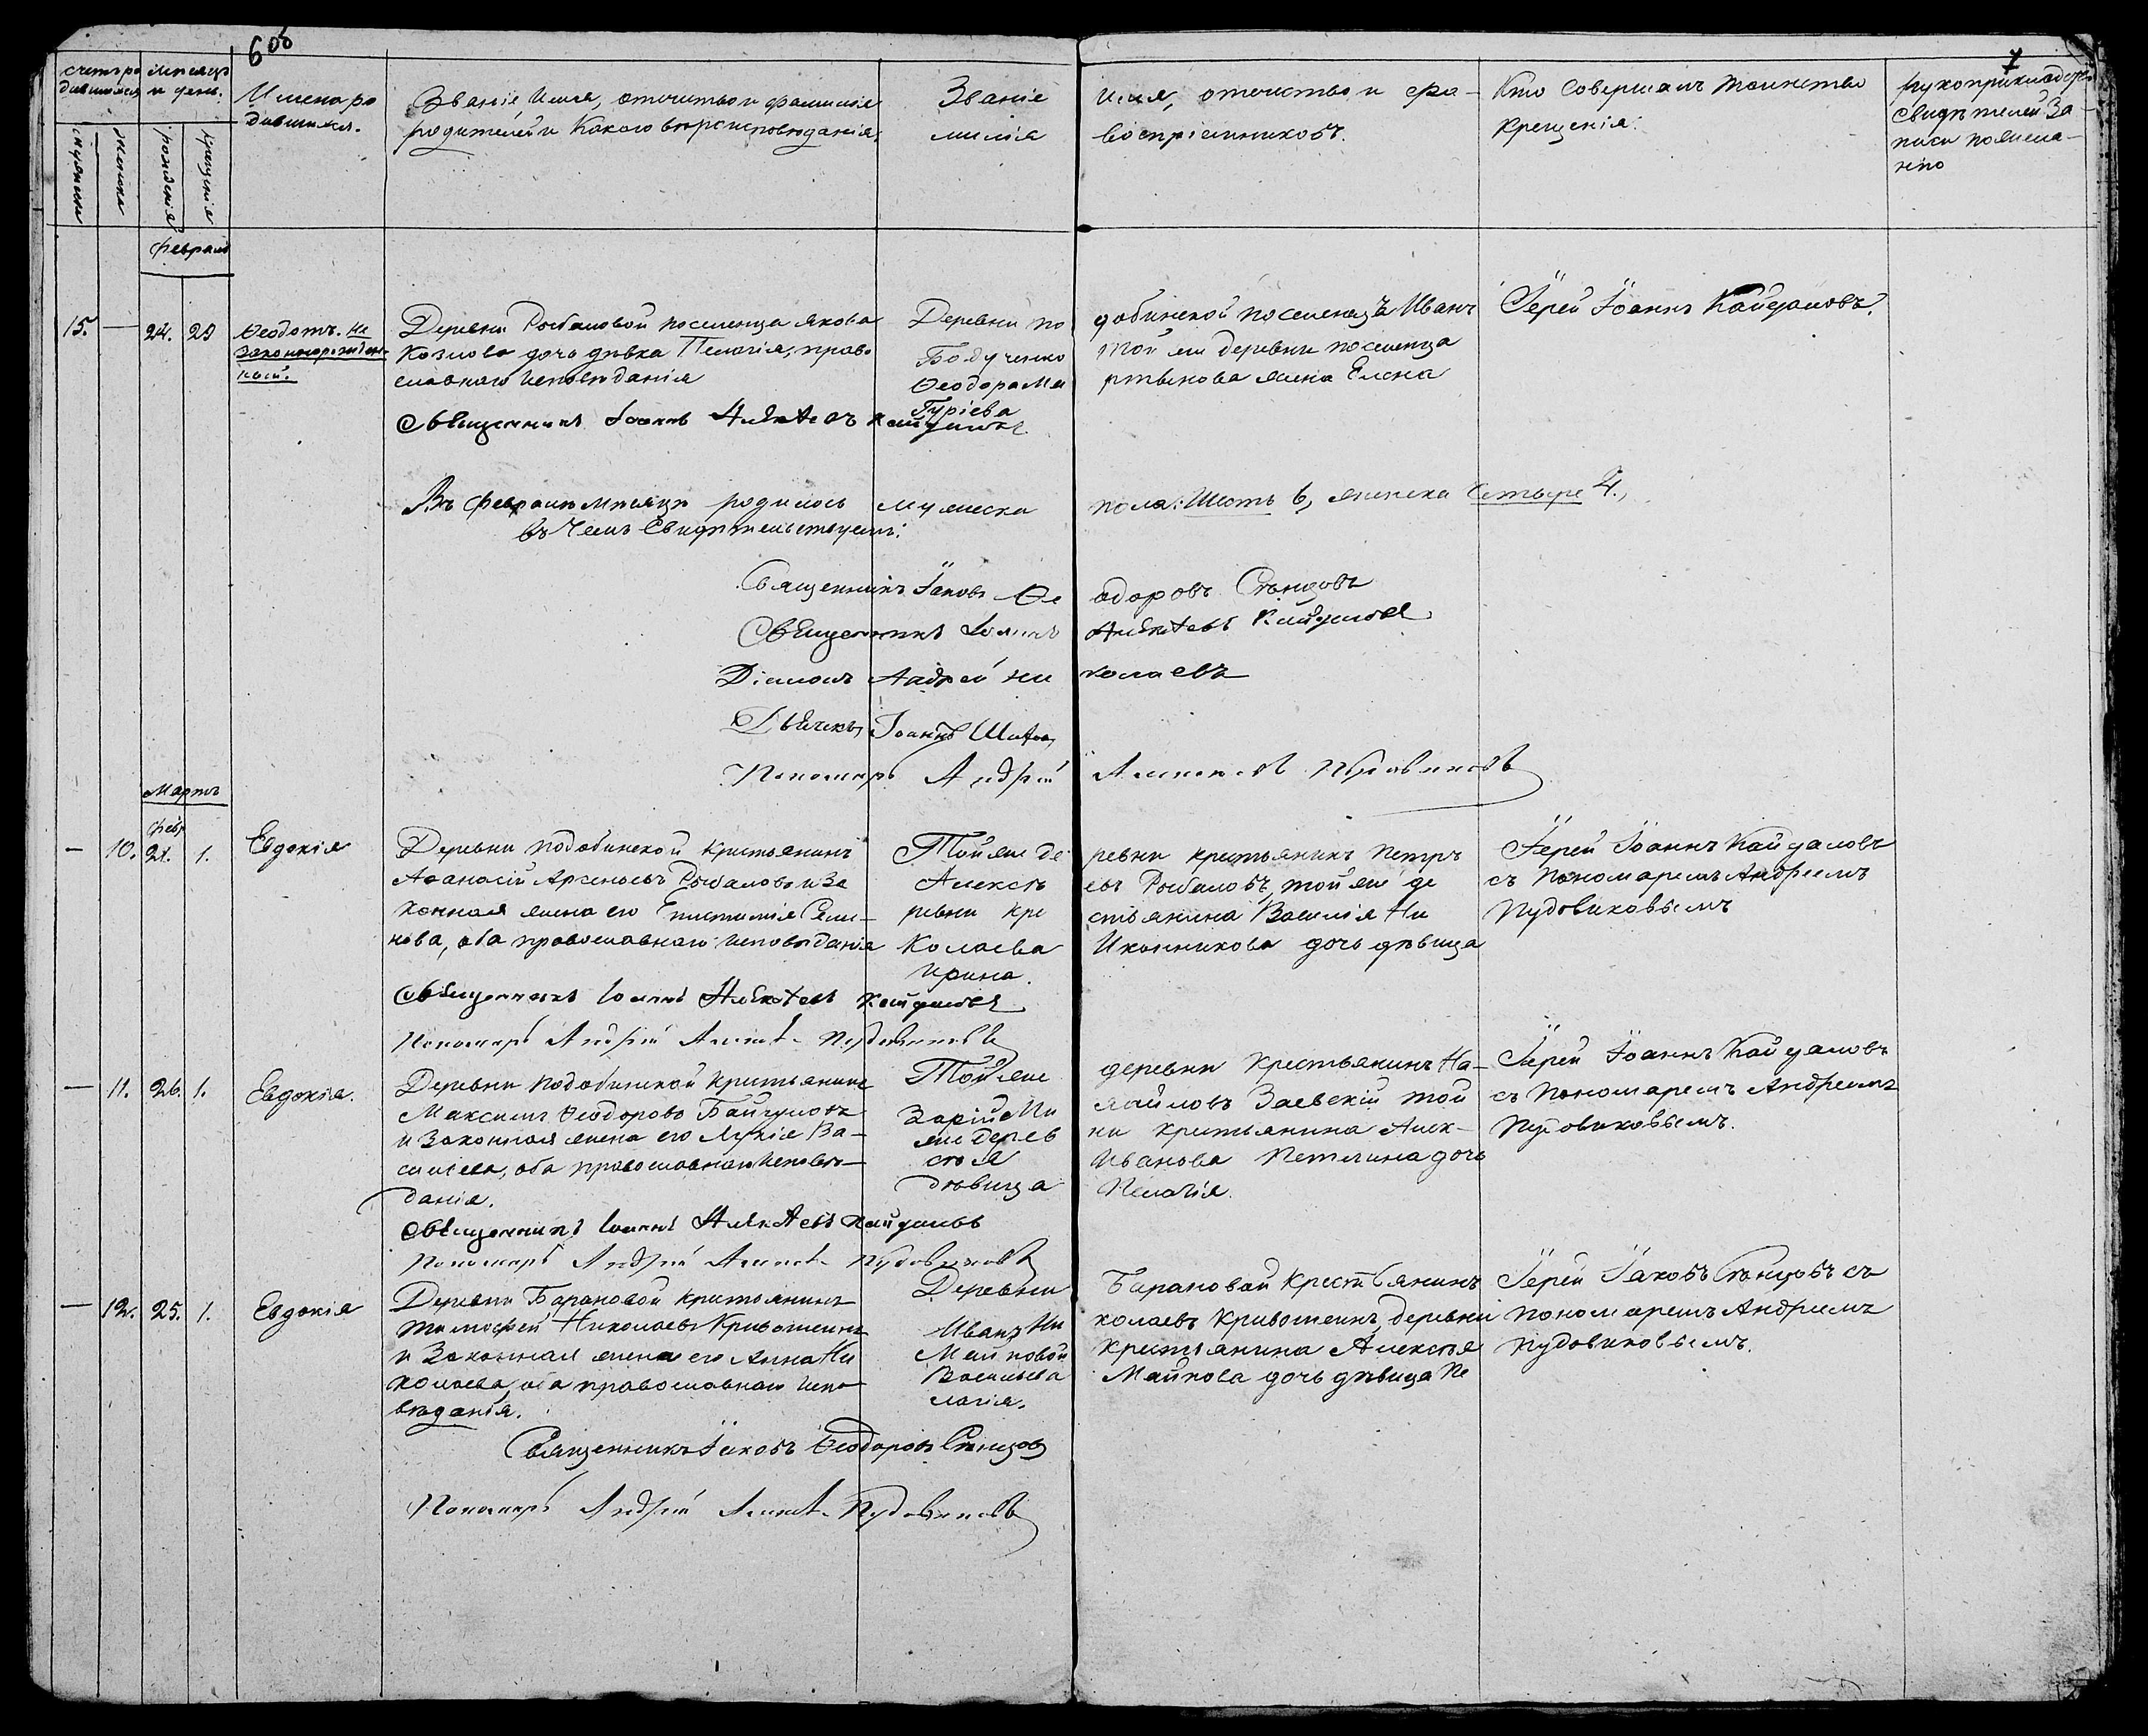 6 об
7
Счетъ ро
дившихся
Месяцъ
и день.
Имена ро
дившихся.
Званіе, имя, отечество и фамилія
родителей и какого вероисповеданія.
Званіе имя, отечество и фа-
милія воспріемниковъ.
Кто совершалъ таинство
крещенія.
Рукоприкладс
свидетелей за
писи по жела-
нію
мужеска
женска
рожденія
крещенія
Февраль
15. — 24. 29 Ѳеодотъ. не
законнорожден-
ный.
Деревни Рыбаловой поселенца Якова
Козлова дочь девка Пелагія, право
славнаго исповеданія
Деревни подобинской поселенецъ Иванъ
Бодученко той же деревни поселенца
Ѳеодора Мартынова жена Елена
Гуріева
Іерей Іоаннъ Кайдаловъ.
Священникъ Іоаннъ Кайдаловъ
Въ Феврале месяце родилось мужеска пола: Шесть 6, женска Четыре 4.,
въ чемъ свидетельствуемъ:
Священникъ Іаковъ Ѳеодоровъ Сенцовъ
Священникъ Іоаннъ Кайдаловъ
Діаконъ Андрей Николаевъ
Дьячекъ Іоаннъ
Пономарь Андрей Пудовиковъ
Мартъ
Фев
— 10. 21. 1. Евдокія
Деревни подобинской крестьянинъ
Аѳанасій Арсеньевъ Рыбаловъ и за
конная жена его Епистимія Семе-
нова, оба православнаго исповеданія
Той же деревни крестьянинъ Петръ
Алексеевъ Рыбаловъ, той же де
ревни крестьянина Василія Ни
Колаева Иконникова дочь девица
Ирина.
Іерей Іоаннъ Кайдаловъ
съ пономаремъ Андреемъ
Пудовиковымъ
Священникъ Іоаннъ Кайдаловъ
Пономарь Андрей Пудовиковъ
— 11. 26. 1. Евдокія.
Деревни подобинской крестьянинъ
Максимъ Ѳеодоровъ Байгуловъ
и законная жена его Лукія Ва-
сильева, оба православнаго испове-
данія.
Той же деревни крестьянинъ На-
зарій Михайловъ Заевскій той
же деревни крестьянина Алек-
сея Иванова Петлина дочь
девица Пелагія.
Іерей Іоаннъ Кайдаловъ
съ пономаремъ Андреемъ
Пудовиковымъ.
Священникъ Іоаннъ Кайдаловъ
Пономарь Андрей Пудовиковъ
— 12. 25. 1. Евдокія
Деревни Барановой крестьянинъ
Тимофей Николаевъ Кривошеинъ
и законная жена его Анна Ни
колаева, оба православнаго испо
веданія.
Деревни Барановой крестьянинъ
Иванъ Николаевъ Кривошеинъ, деревни
Майковой крестьянина Алексея
Васильева Майкова дочь девица Пе
лагія.
Іерей Іаковъ Сенцовъ съ
пономаремъ Андреемъ
Пудовиковымъ.
Священникъ Іаковъ Ѳеодоровъ Сенцовъ
Пономарь Андрей Пудовиковъ